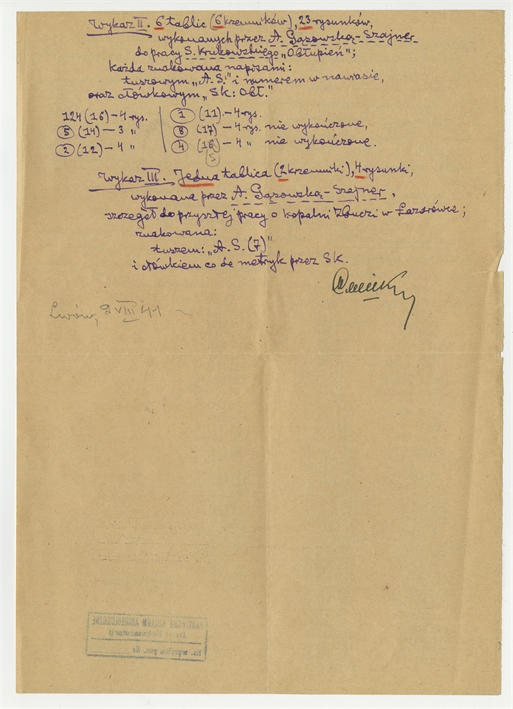 Wykaz II. 6 tablic (6 krzemników), 23 rysunków,
wykonanych przez A. Gąsowską-Szajner
do pracy S. Krukowskiego „Obłupień”;
każda znakowana naprzani:
tuszowym „A.S.” i numerem w nawasie,
oraz ołówkowym „Sk: Obł.”
124 (16) – 4 rys.
5 (14) – 3 „
2 (12) – 4 „
1 (11) – 4 rys.
3 (17) – 4 rys. nie wykończone,
4 – 4 „ nie wykończone.
5
Wykaz III. Jedna tablica (2 krzemniki), 4 rysunki,
wykonana przez A. Gąsowską-Szejner,
szczegół do przyszłej pracy o kopalni w Łazarówce;
znakowana:
tuszem: „A.S. (7)”
i ołówkiem co do metryk przez Sk.
Lwów, 8 VIII 41
PAŃSTWOWE MUZEUM ARCHEOLOGICZNE